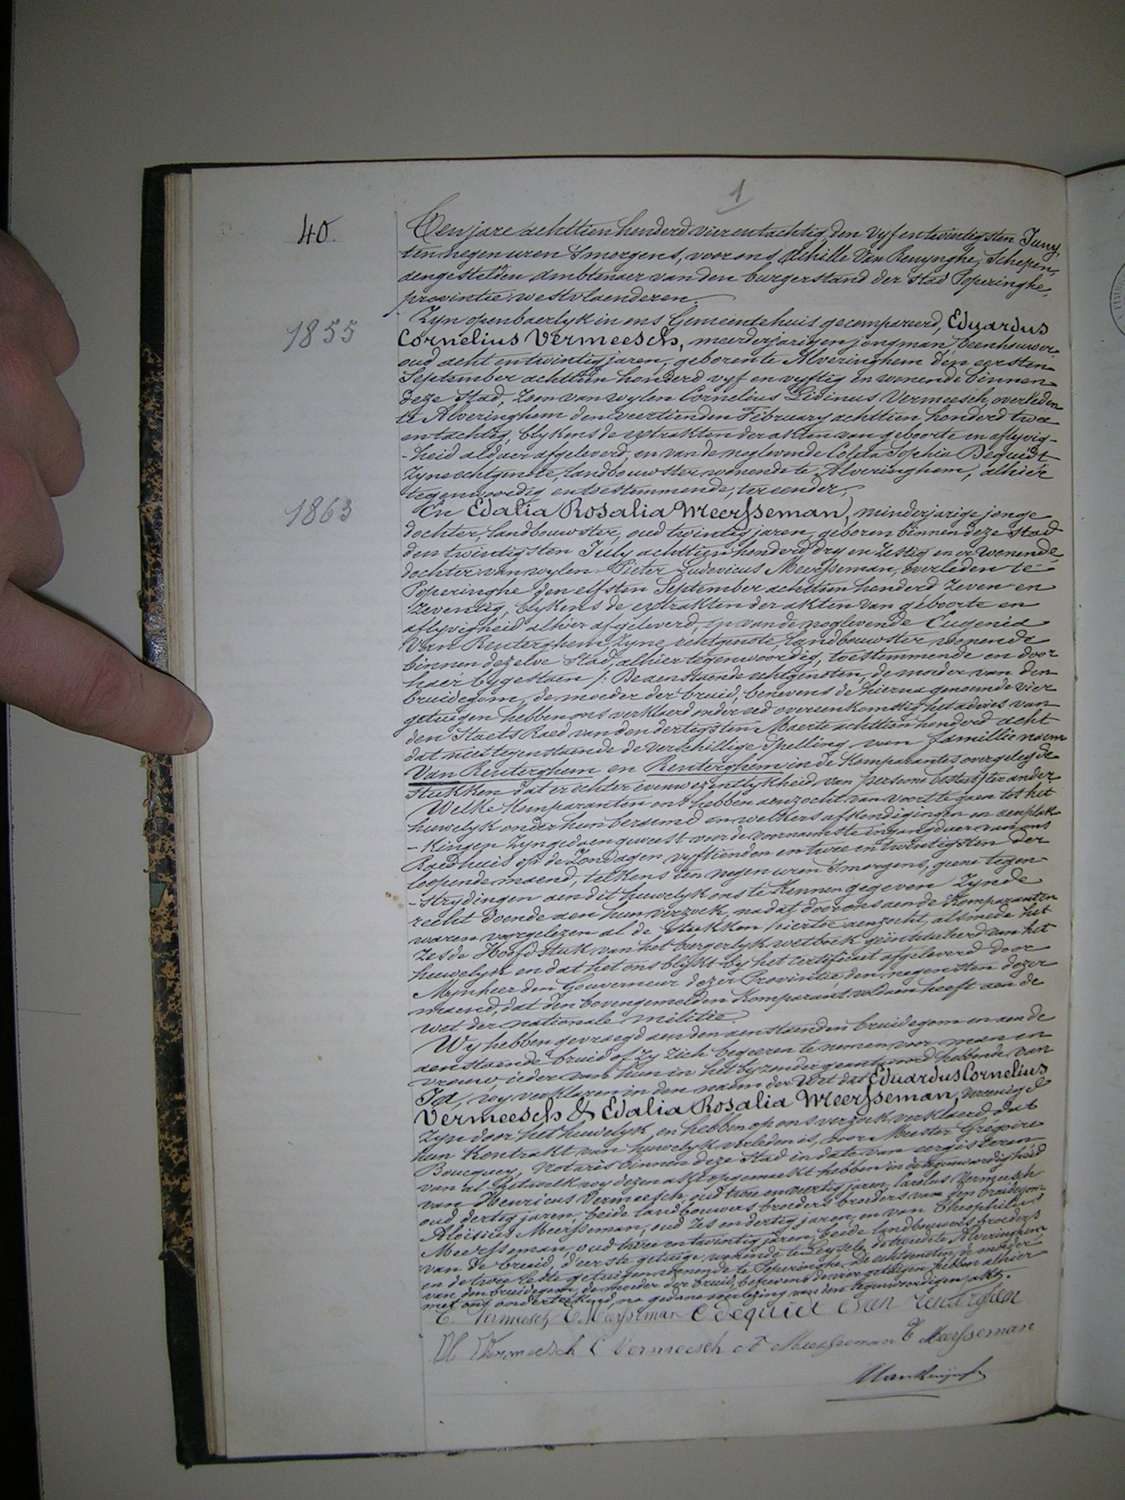 1
40.
Ten jare achttien honderd vier en tachtig den vyf en twintigsten Juny,
ten negen uren 's morgens, voor ons Achille Van Renynghe, Schepen,
aengestelden ambtenaer van den burgerstand der stad Poperinghe,
provintie westvlaenderen.
1855
Zyn openbaerlyk in ons Gemeentehuis gecompareerd, Eduardus
Cornelius Vermeesch, meerderjarigen jongman, beenhouwer,
oud acht en twintig jaren, geboren te Alveringhem den eersten
September achttien honderd vyf en vyftig en wonende binnen
deze Stad, zoon van wylen Cornelius Livinus Vermeesch, overleden
te Alveringhem den veertienden February achttien honderd twee
en tachtig, blykens de extrakten der akten van geboorte en aflyvig-
-heid aldaer afgeleverd, en van de noglevende Coleta Sophia Dequidt
zyne echtgenote, landbouwster wonende te Alveringhem, alhier
tegenwoordig en toestemmende, ter eender
1863
En Edalia Rosalia Meersseman, minderjarige jonge
dochter, landbouwster, oud twintig jaren, geboren binnen deze stad
den twintigsten July achttien honderd dry en zestig en er wonende,
dochter van wylen Pieter Ludovicus Meersseman, overleden te
Poperinghe den elfsten September achttien honderd zeven en
zeventig, blykens de extrakten der akten van geboorte en
aflyvigheid alhier afgeleverd, en van de noglevende Eugenia
Van Renterghem zyne echtgenote, landbouwster wonende
binnen dezelve Stad, alhier tegenwoordig, toestemmende en door
haer bygestaen /: De aenstaende echtgenoten, de moeder van den
bruidegom, de moeder der bruid, benevens de hierna genoemde vier
getuigen hebben ons verklaerd onder eed overeenkomstig het advies van
den Staets Raed van den dertigsten Maerte achttien honderd acht
dat niettegenstaende de verschillige spelling van famillienaem
Van Renterghem en Renterghem in de Komparantes overgelegde
stukken dat er echter eenwezentlykheid van persone bestaet, ter ander
Welke Komparanten ons hebben aenzocht van voort te gaen tot het
huwelyk onder hun beraemd en welkers afkondigingen en aenplak-
-kingen zyn gedaen geweest voor de voornaemste ingangdeur van ons
Raedhuis op de Zondagen vyftienden en twee en twintigsten der
loopende maend, telkens ten negen uren 's morgens, geene tegen
-strydingen aen dit huwelyk ons te kennen gegeven zynde
recht doende aen hun verzoek, na dat door ons aen de Komparanten
waren voorgelezen al de stukken hiertoe aenzocht, alsmede het
zesde Hoofdstuk van het borgerlyk wetboek geïntituleerd van het
huwelyk en dat het ons blykt by het certificaet afgeleverd door
Mynheer den Gouverneur dezer Provintie den negensten dezer
maend, dat den bovengemelden Komparant voldaen heeft aen de
wet der nationale militie
Wy hebben gevraegd aen den aenstaenden bruidegom en aen de
aenstaende bruid of zy zich begeeren te nemen voor man en
vrouw ieder van hun in het byzonder geantwoord hebbende, van
Ja, wy verklaren in den naem der Wet dat Eduardus Cornelius
Vermeesch & Edalia Rosalia Meersseman, vereenigd
zyn door het huwelyk en hebben op ons verzoek verklaerd dat
hun kontrakt van huwelyk verleden is, voor Meester Gregoire
Boucquey, Notaris binnen deze Stad in date van eergisteren
van al hetwelk wy dezen akt opgemaekt hebben in de tegenwoordigheid
van Henricus Vermeesch, oud twee en veertig jaren, Carolus Vermeesch
oud dertig jaren, beide landbouwers broeders van den bruidegom
Aloïsius Meersseman, oud zes en dertig jaren, en van Theophilus
Meersseman, oud twee en twintig jaren, beide landbouwers broeders
van de bruid, d'eerste getuige, wonende te Leysele, de tweede te Alveringhem
en de twee leste getuigen wonende te Poperinghe, de echtgenoten, de moeder
van den bruidegom, de moeder der bruid, benevens de vier getuigen hebben alhier
met ons onderteekend, na gedane voorlezing van den tegenwoordigen akt.
E. Vermeesch E Meersseman C dequidt E van renterghem
H Vermeesch C Vermeesch A Meersseman T Meersseman